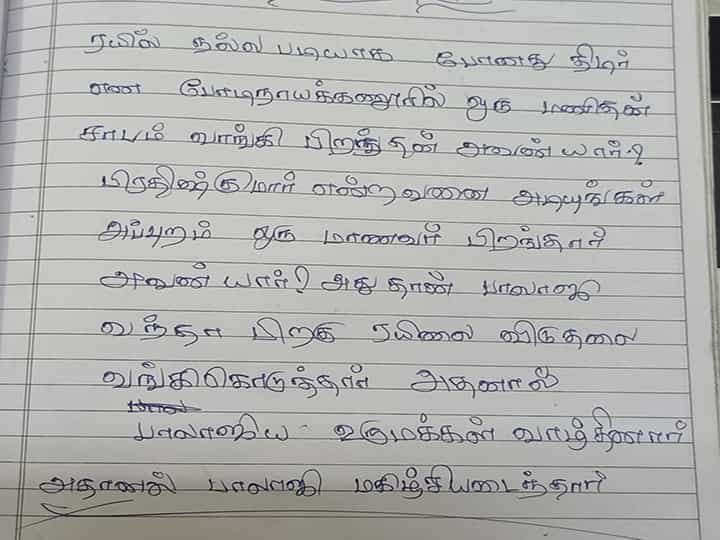 ரயில் நல்ல படியாக போனது திடிர்
என போடிநாயக்கனூரில் ஒரு மனிதன்
சாபம் வாங்கி பிறந்தன் அவன் யார்?
பிரதின்குமார் என்றவனை அடியுங்கள்
அப்புறம் ஒரு மாணவர் பிறந்தார்
அவன் யார்? அது தான் பாலாஜி
வந்தா பிறகு ரயிலை விடுதலை
வங்கிகொடுத்தார் அதனால்
பாலாஜிய ஊருமக்கள் வாழ்தினார்
அதானல் பாலாஜி மகிழ்சியடைந்தார்